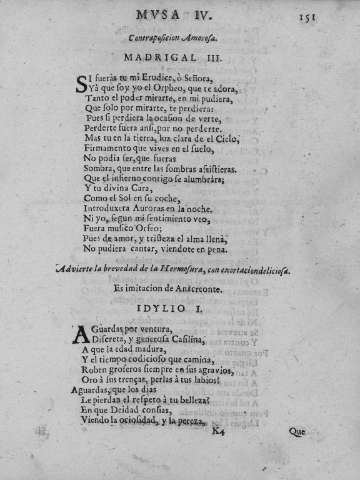 MVSA IV.
151
Contraposicion Amorosa.
MADRIGAL III.
SI fueras tu mi Erudice, ò Señora,
Yà que soy yo el Orpheo, que te adora,
Tanto el poder mirarte, en mi pudiera,
Que solo por mirarte, te perdiera:
Pues si perdiera la ocasion de verte,
Perderte fuera ansi, por no perderte.
Mas tu en la tierra, luz clara de el Cielo,
Firmamento que vives en el suelo,
No podia ser, que fueras
Sombra, que entre las sombras assistieras.
Que el infierno contigo se alumbrára;
Y tu divina Cara,
Como el Sol en su coche,
Introduxera Auroras en la noche.
Ni yo, segun mi sentimiento veo,
Fuera musico Orfeo;
Pues de amor, y tristeza el alma llena,
No pudiera cantar, viendote en pena.
Advierte la brevedad de la Hermosura, con exortacion deliciosa.
Es imitacion de Anacreonte.
IDYLIO I.
AGuardas por ventura,
Discreta, y generosa Casilina,
A que la edad madura,
Y el tiempo codicioso que camina,
Roben groseros siempre en sus agravios,
Oro à sus trenças, perlas à tus labios?
Aguardas, que los dias
Le pierdan el respeto à tu belleza?
En que Deidad confias,
Viendo la ociosidad, y la pereza,
K4
Que